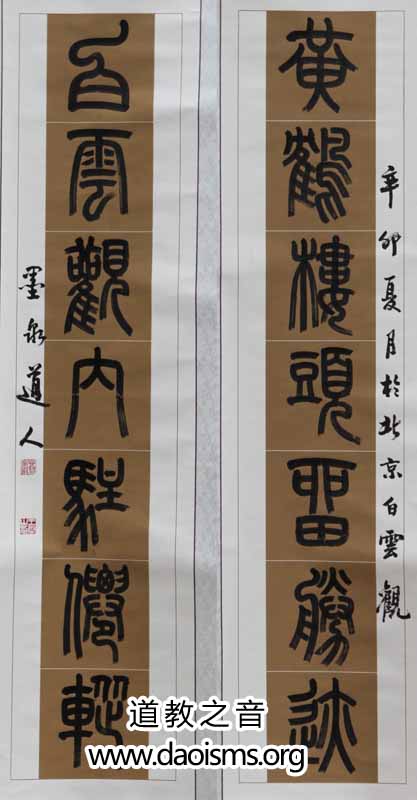 辛卯夏月於北京白雲觀
黄鶴樓頭留勝迹
白雲觀内駐僊蹤
墨泉道人
道教之音
www.daoisms.org